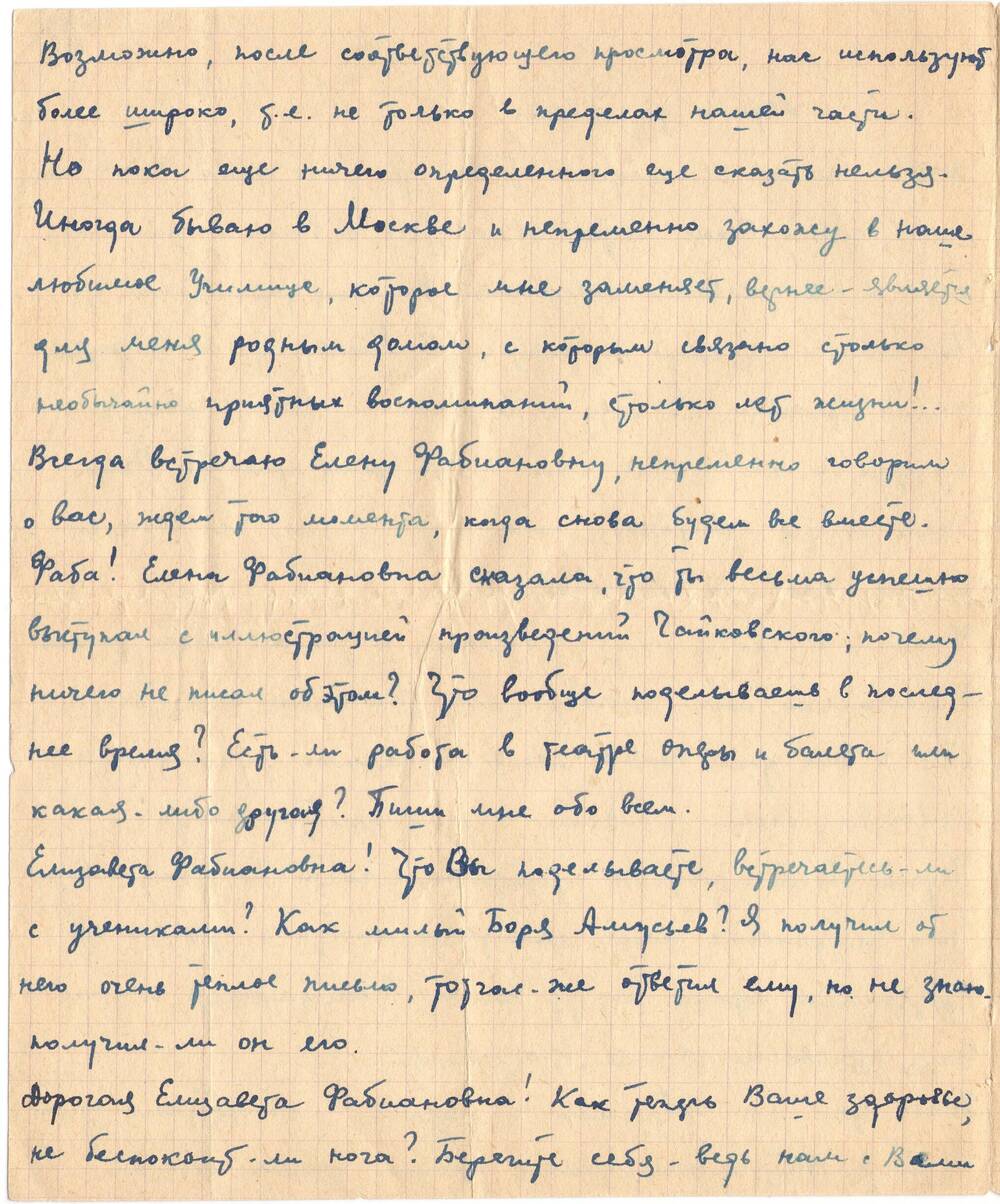 Возможно, после соответствующего просмотра, нас используют
более широко, т.е. не только в пределах нашей части.
Но пока еще ничего определенного еще сказать нельзя.
Иногда бываю в Москве и непременно захожу в наше
любимое Училище, которое мне заменяет, вернее - является
для меня родным домом, с которым связано столько
необычайно приятных воспоминаний, столько лет жизни!..
Всегда встречаю Елену Фабиановну, непременно говорим
о вас, ждем того момента, когда снова будем все вместе.
Фаба! Елена Фабиановна сказала, что ты весьма успешно
выступал с иллюстрацией произведений Чайковского; почему
ничего не писал об этом? Что вообще поделываешь в послед-
нее время? Есть-ли работа в театре оперы и балета или
какая-либо другая? Пиши мне обо всем.
Елизавета Фабиановна! Что Вы поделываете, встречаетесь-ли
с учениками? Как милый Боря Амусьев? Я получил от
него очень теплое письмо, тотчас-же ответил ему, но не знаю-
получил-ли он его.
Дорогая Елизавета Фабиановна! Как теперь Ваше здоровье,
не беспокоит-ли нога? Берегите себя - ведь нам с Вами